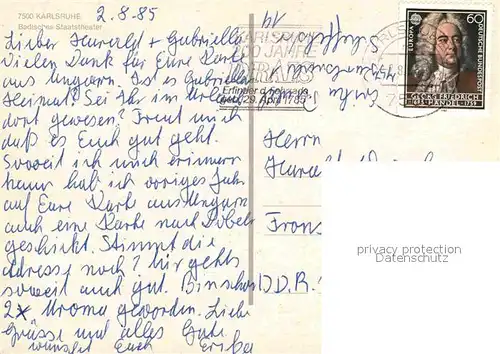 7500 KARLSRUHE
Badisches Staatstheater
2.8.85
Lieber Harald + Gabriella
Vielen Dank für Eure Karte
aus Ungarn. Ist es Gabriellas
Heimat? Sei Ihr im Urlaub
dort gewesen? Freut mich
daß es Euch gut geht.
Soweit ich mich erinnern
kann hab ich voriges Jahr
auf Eure Karte aus Ungarn
auch eine Karte nach Döbeln
geschickt. Stimmt die
Adresse noch? Mir gehts
soweit auch gut. Bin schon
2x Uroma geworden. Liebe
Grüsse und alles Gute
wünscht Euch Erika
KARLSRUHE
200 JAHRE
DRAIS
Erfinder d. Fahrrads
geb. 29. April 1785
EUROPA
60
DEUTSCHE BUNDESPOST
GEORG FRIEDRICH
1685 HÄNDEL 1759
Herrn
Harald
D.D.R.
privacy protection
Datenschutz